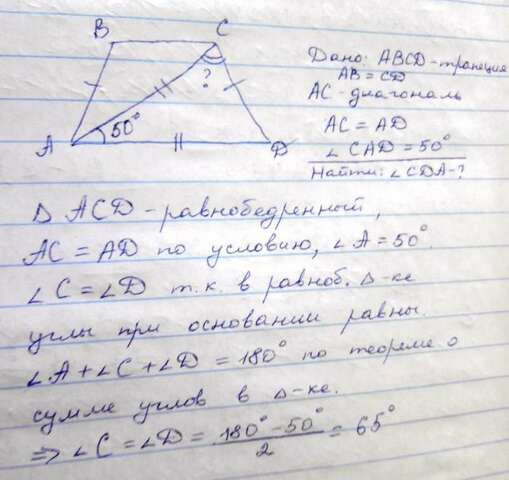 B C
Дано: ABCD - трапеция
AB = CD
AC - диагональ
?
50°
AC = AD
A D
∠ CAD = 50°
Найти: ∠ CDA - ?
Δ ACD - равнобедренный,
AC = AD по условию, ∠ A = 50°.
∠ C = ∠ D т.к. в равноб. Δ-ке
углы при основании равны.
∠ A + ∠ C + ∠ D = 180° по теореме о
сумме углов в Δ-ке.
⇒ ∠ C = ∠ D = 180° - 50° / 2 = 65°